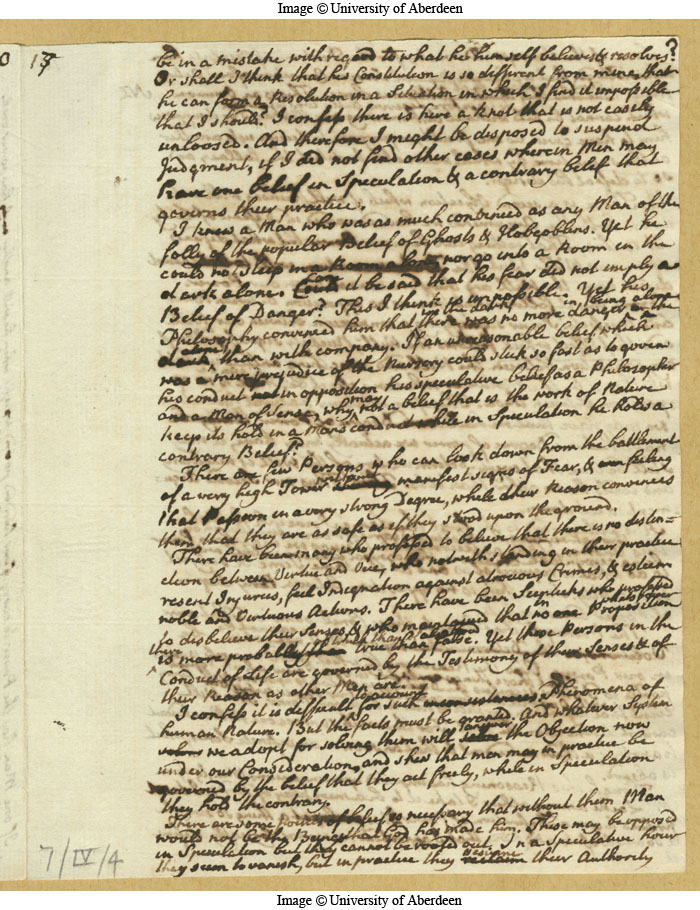 Image © University of Aberdeen
13
be in a mistake with regard to what he himself believes & resolves?
Or shall I think that his Constitution is so different from mine, that
he can form a Resolution in a Situation in which I find it impossible
that I should? I confess there is here a knot that is not easily
unloosed. And therefore I might be disposed to suspend
Judgment, if I did not find other cases wherein Men may
have one belief in Speculation & a contrary belief that
governs their practice.
I knew a Man who was as much convinced as any Man of the
folly of the popular Belief of Ghosts & Hobgoblins. Yet he
could not sleep in a Room alone nor go into a Room in the
dark alone. Could it be said that his fear did not imply a
Belief of Danger? This I think is impossible. Yet his
Philosophy convinced him that there was no more danger in the
in the dark being alone
than with company. If an unreasonable belief which
was a mere prejudice of the Nursery could stick so fast as to govern
his conduct in opposition his speculative belief as a Philosopher
and a Man of Sense, why may not a belief that is the work of Nature
keep its hold in a Mans conduct while in Speculation he holds a
contrary Belief?
There are few Persons who can look down from the battlement
of a very high Tower without manifest signs of Fear, & feeling
that Passion in a very strong Degree, while their Reason convinces
them that they are as safe as if they stood upon the ground.
There have been many who professed to believe that there is no distin=
ction between Virtue and Vice, who notwithstanding in their practice
resent Injuries, feel Indignation against atrocious Crimes, & esteem
noble and Virtuous Actions. There have been Scepticks who professed
to disbelieve their Senses & who maintained that in no one Proposition whatsoever
there is more probability which than true than false. Yet these Persons in the
Conduct of Life are governed by the Testimony of their Senses & of
their Reason as other Men are.
I confess it is difficult to account for such inconsistencies Phenomena of
human Nature. But the facts must be granted. And whatever System
we adopt for solving them will answer the Objection now
under our Consideration, and shew that men may in practice be
governed by the belief that they act freely, while in Speculation
they hold the contrary.
There are some points of belief so necessary that without them Man
would not be the Being that God has made him. These may be opposed
in Speculation but they cannot be rooted out. In a Speculative hour
they seem to vanish, but in practice they reclaim their Authority
7/IV/4
Image © University of Aberdeen